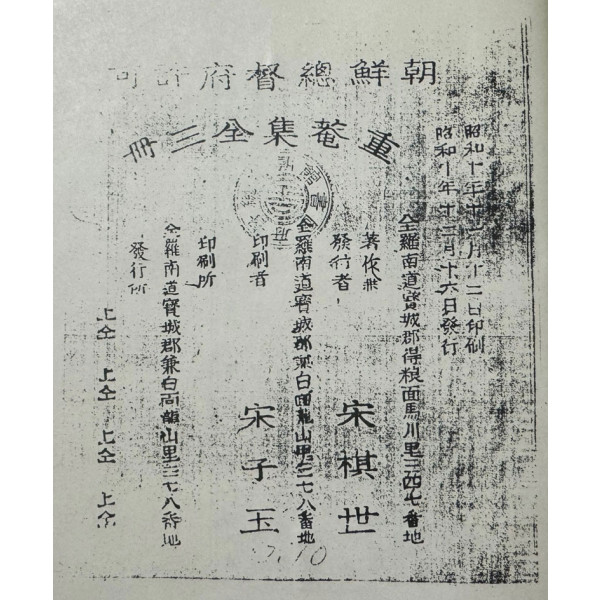 朝鮮總督府許可
重菴集全三冊
昭和十年十二月十二日印刷
昭和十年十二月十六日發行
全羅南道寶城郡得粮面馬川里三四七番地
著作兼
發行者
宋棋世
全羅南道寶城郡兼白面龍山里三七八番地
印刷者
宋子玉
印刷所
全羅南道寶城郡兼白面龍山里三七八番地
發行所
上仝 上仝 上仝 上仝